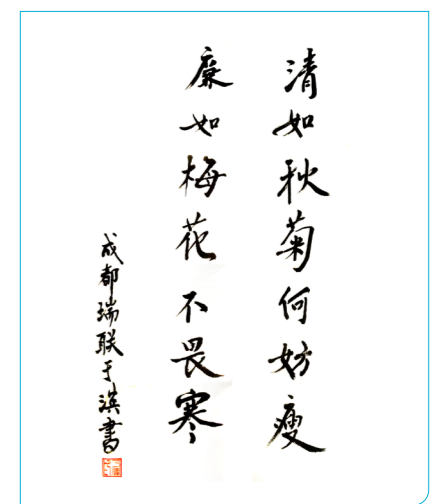 清如秋菊何妨瘦
廉如梅花不畏寒
成都瑞联于滨书